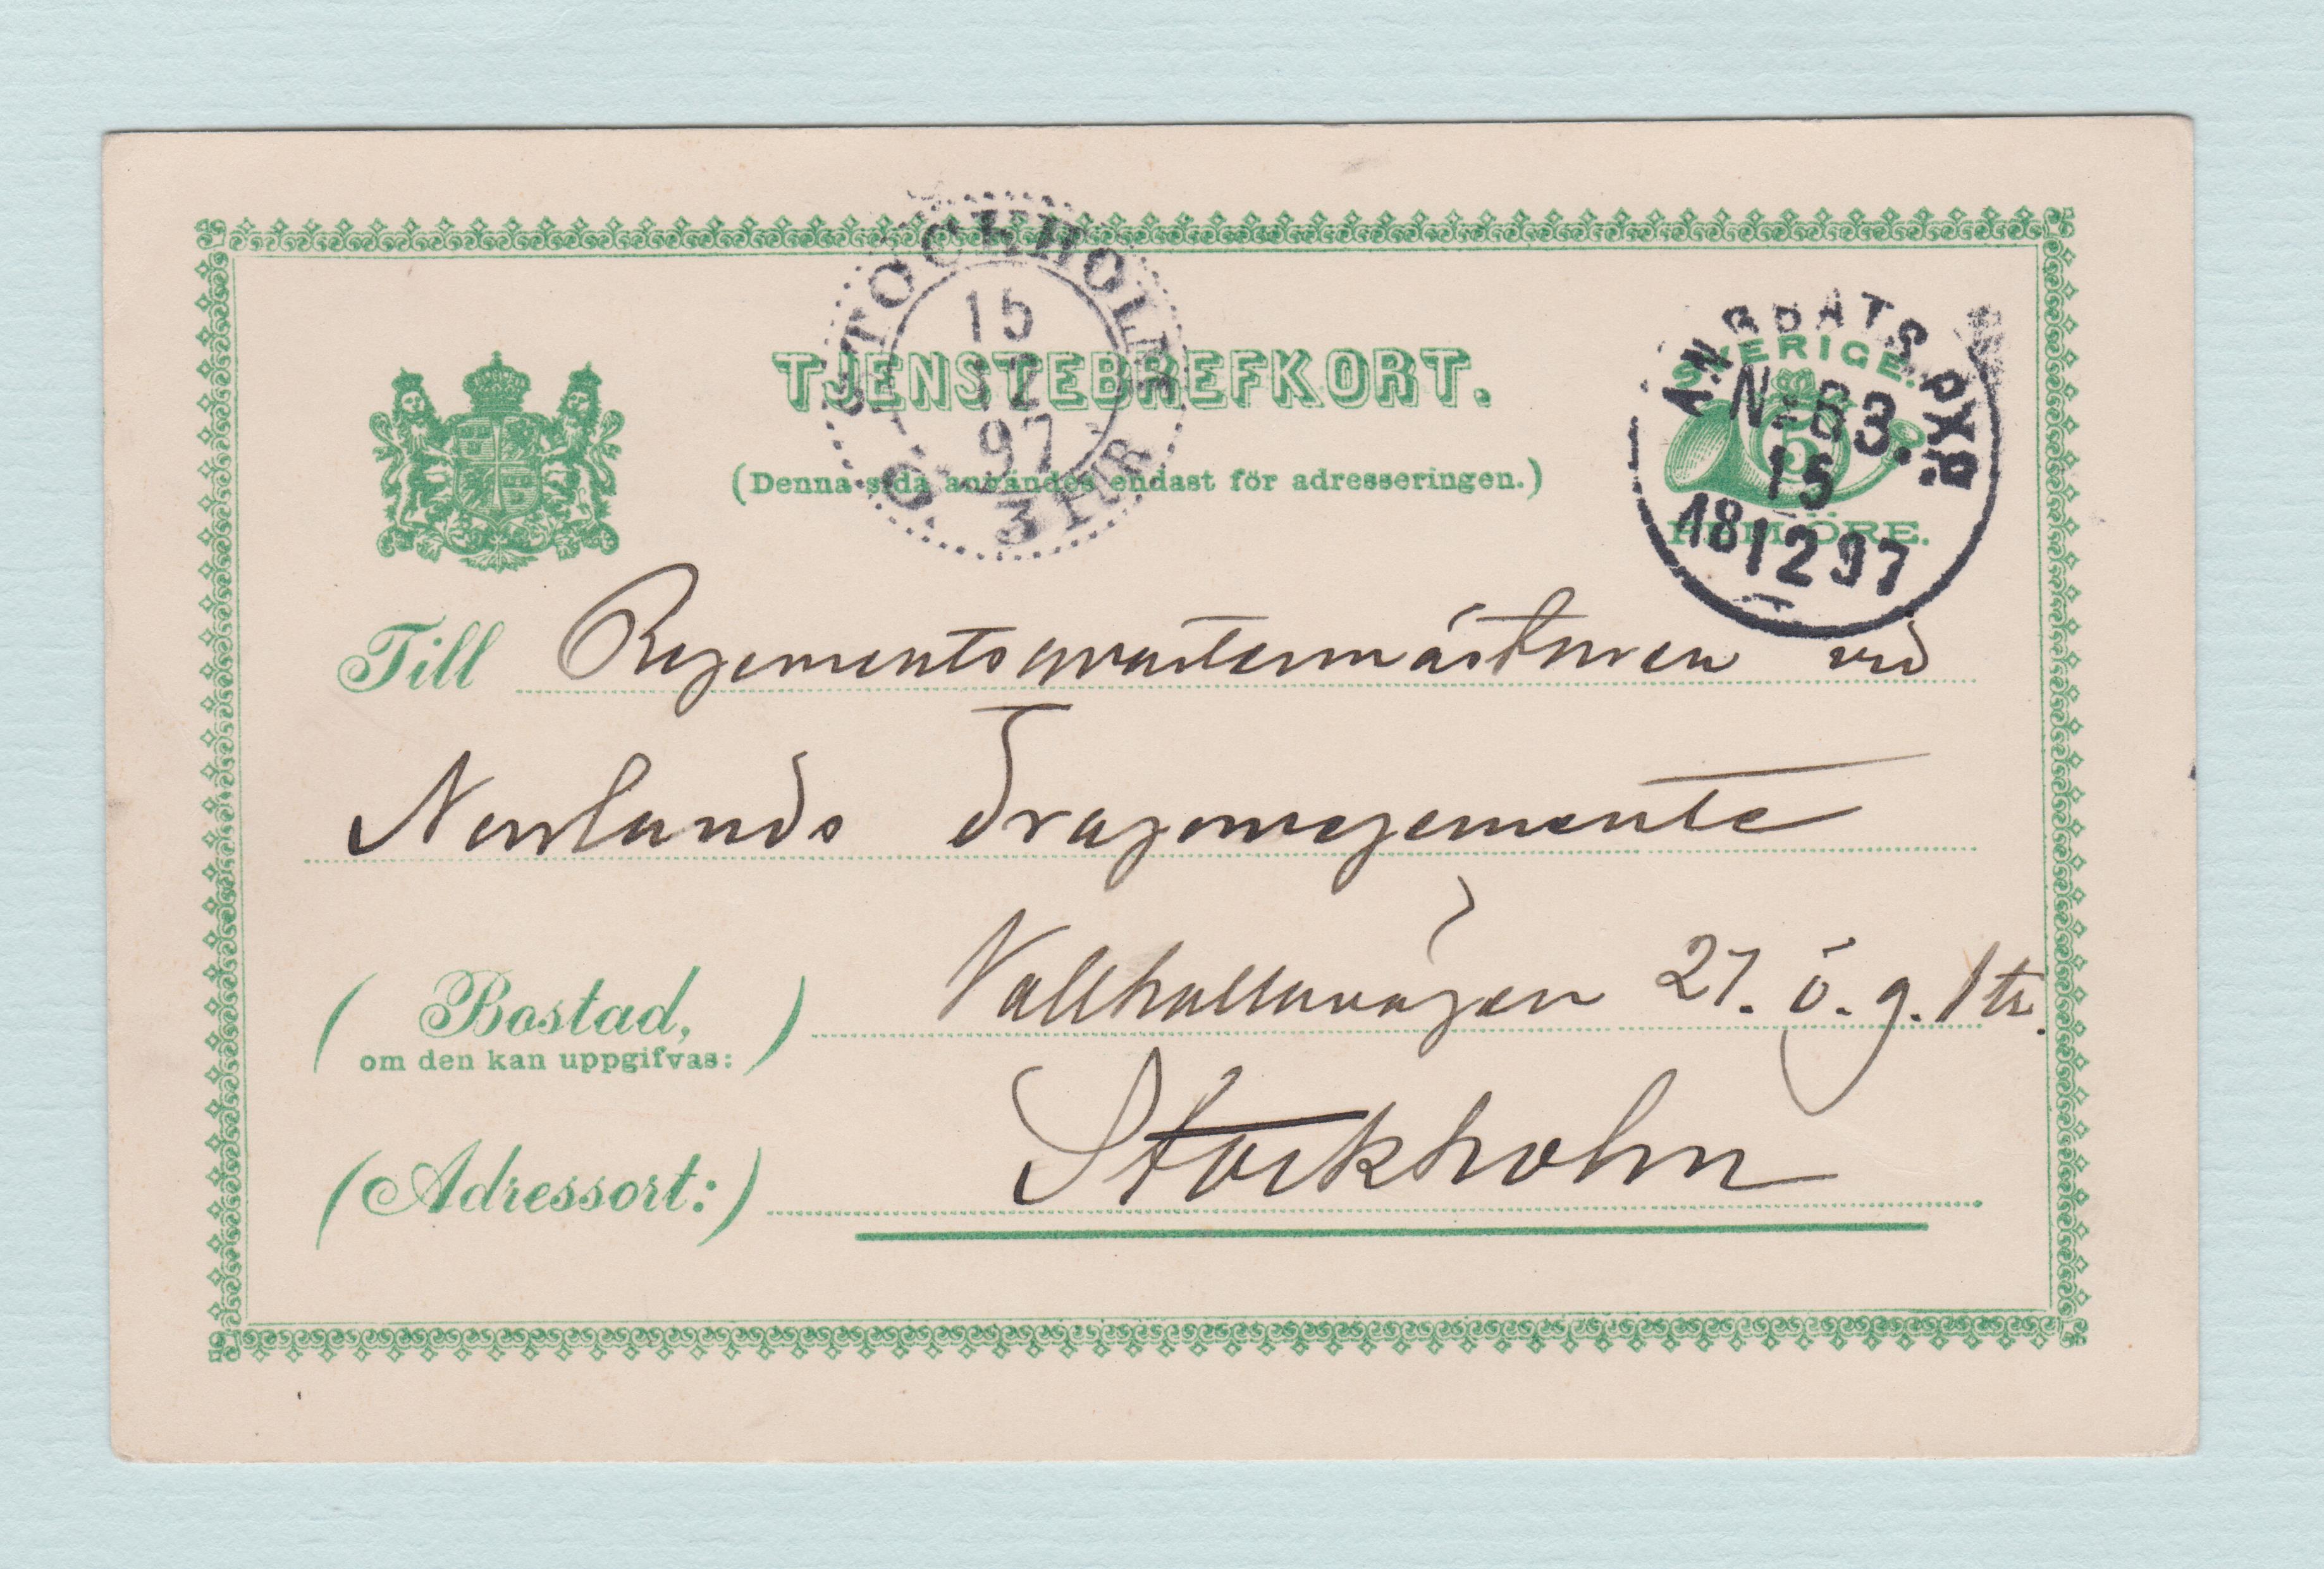 STOCKHOLM
15
12
97
Ö. 3 TUR
TJENSTEBREFKORT.
(Denna sida användes endast för adresseringen.)
SVERIGE.
5
FEM ÖRE.
ÅNGBÅTS PXP.
No 63.
15
18 12 97
Till Regementsqvartermästaren vid
Norrlands Dragonregemente
(Bostad, om den kan uppgifvas:) Vallhallavägen 27. ö. g. 1 tr.
(Adressort:) Stockholm